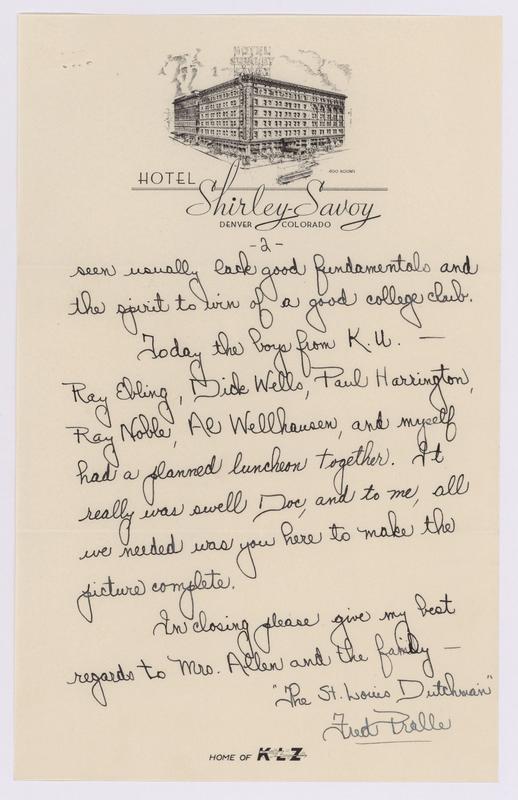 HOTEL
SHIRLEY
SAVOY
400 ROOMS
HOTEL
Shirley-Savoy
DENVER COLORADO
-2-
seen usually lack good fundamentals and
the spirit to win of a good college club.
Today the boys from K.U. —
Ray Ebling, Dick Wells, Paul Harrington,
Ray Noble, Al Wellhausen, and myself
had a planned luncheon together. It
really was swell Doc, and to me, all
we needed was you here to make the
picture complete.
In closing please give my best
regards to Mrs. Allen and the family —
"The St. Louis Dutchman"
Fred Pralle
HOME OF KLZ